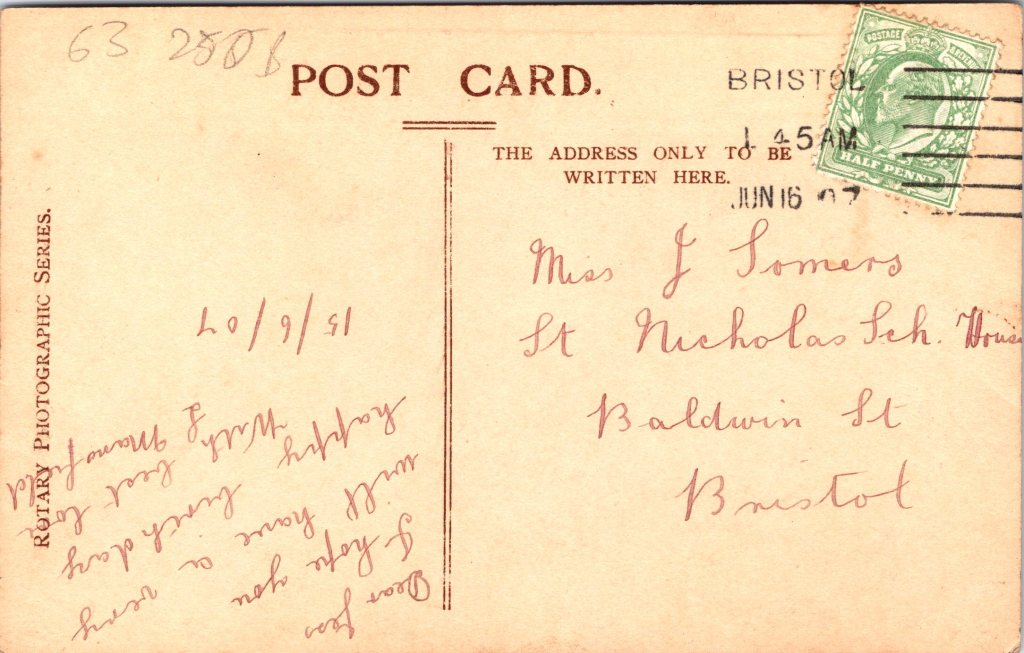 63
POST CARD.
THE ADDRESS ONLY TO BE
WRITTEN HERE.
BRISTOL
1 45AM
JUN 16 07
POSTAGE
HALF PENNY
Miss J Somers
St Nicholas Sch. House
Baldwin St
Bristol
Dear Jess
I hope you
will have a very
happy birth day
With best love
Mansfield
15/6/07
ROTARY PHOTOGRAPHIC SERIES.